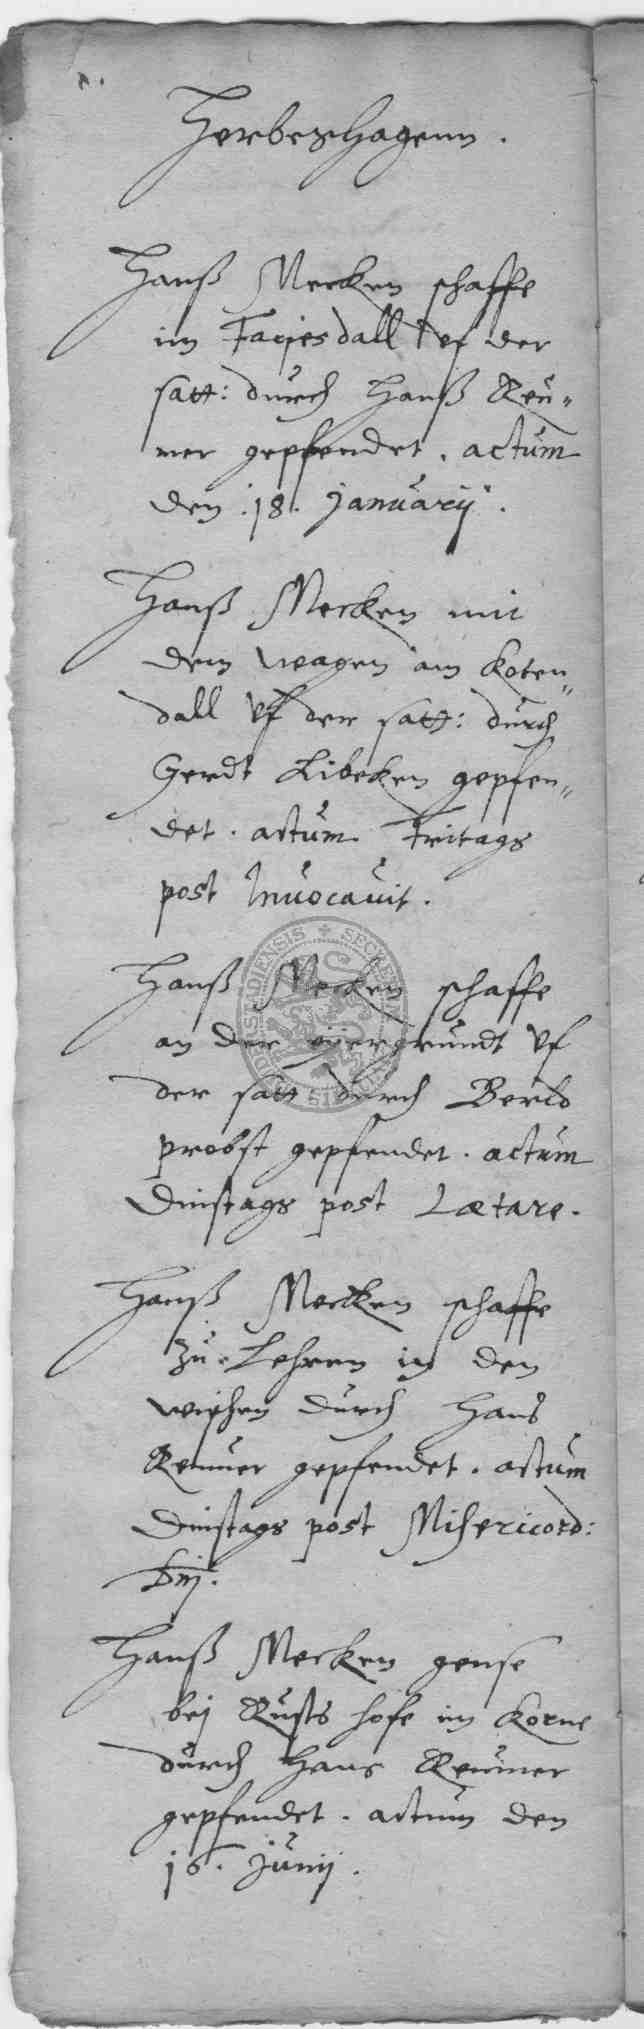 Herbeshagenn.
Hanß Mecken schaffe
im Facjesdall vf der
satt: durch Hanß Reu„
mer gepfendet. actum
den .18. January.
Hanß Mecken mit
dem wagen am Koten„
dall vf der satt: durch
Gerdt Libeken gepfen„
det. actum Fritags
post Inuocauit.
Hanß Mecken schaffe
an der grundt vf
der satt durch Berld
probst gepfendet. actum
Dinstags post Lætare.
Hanß Mecken schaffe
zu Lehren in den
wiesen durch Hans
Reumer gepfendet. actum
Dinstags post Misericord:
Dnj.
Hanß Mecken gense
bej Rusts hofe im Korne
durch Hans Reumer
gepfendet. actum den
16. Junij.